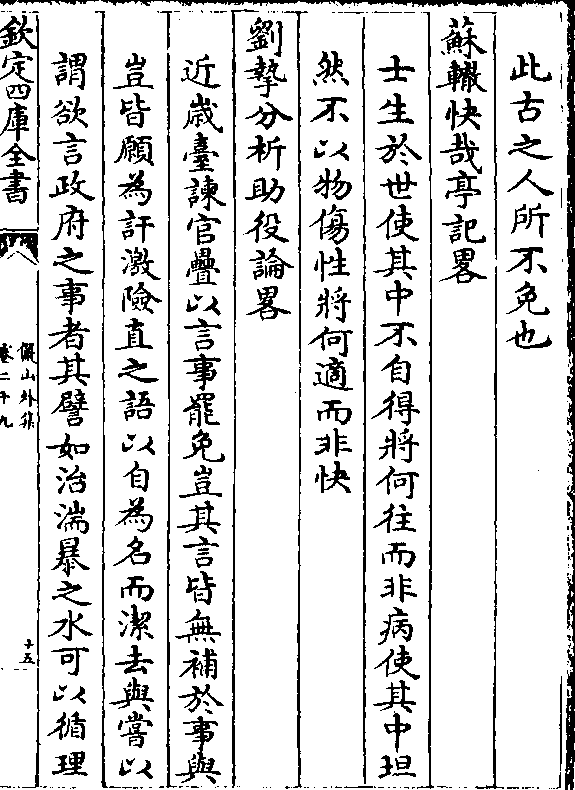 此古之人所不免也
蘇轍快哉亭記畧
士生於世使其中不自得將何往而非病使其中坦
然不以物傷性將何適而非快
劉摯分析助役論畧
近歳臺諫官疊以言事罷免豈其言皆無補於事與
豈皆願為訐激險直之語以自為名而潔去與嘗以
謂欲言政府之事者其譬如治湍暴之水可以循理
欽定四庫全書
儼山外集
卷二十九
十五